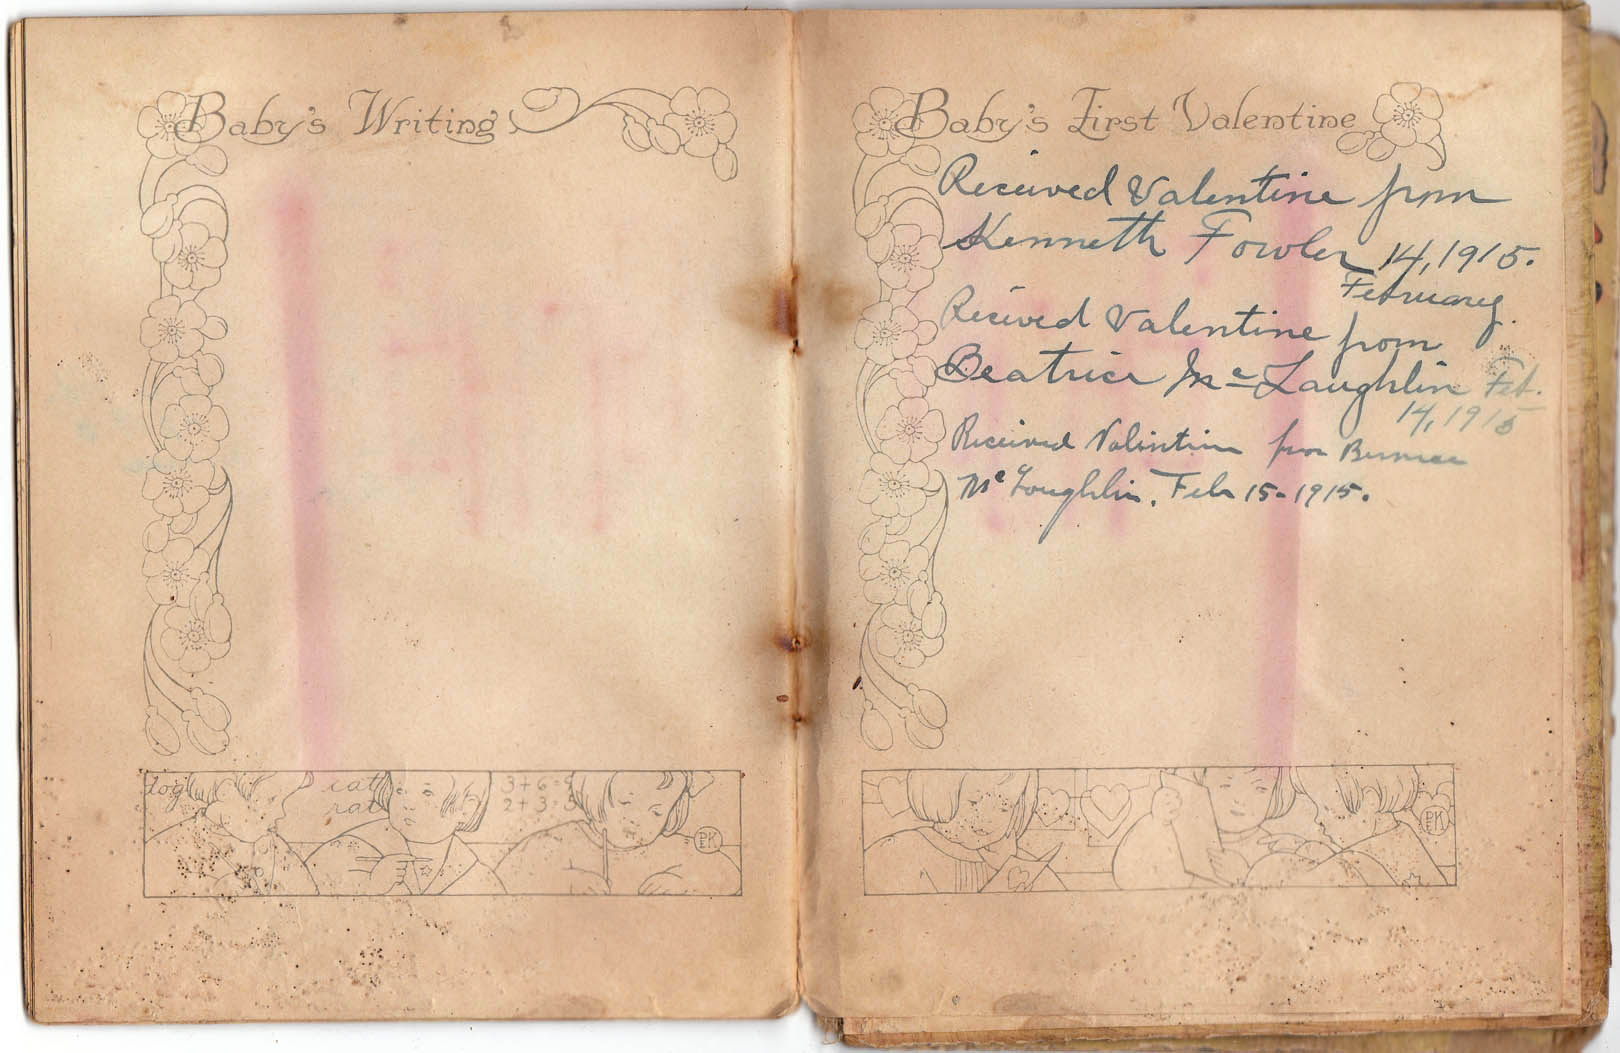 Baby's Writing
dog
cat
rat
3+6=9
2+3=5
PK
Baby's First Valentine
Received Valentine from
Kenneth Fowler 14, 1915.
February
Recived Valentine from
Beatrice Mc Laughlin Feb.
14, 1915
Received Valintine from Bernice
Mc Loughlin. Feb 15-1915.
PK